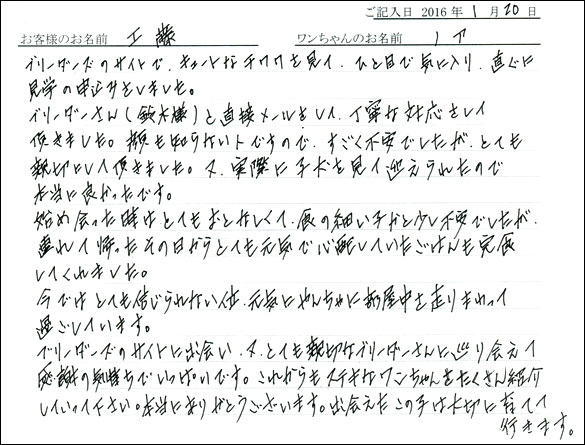 ご記入日 2016年 1月 20日
お客様のお名前 工藤 ワンちゃんのお名前 ノア
ブリーダーズのサイトで、キュートなチワワを見て、ひと目で気に入り、直ぐに
見学の申込みをしました。
ブリーダーさん(鈴木様)と直接メールをして、丁寧な対応をして
頂きました。顔も知らない人ですので、すごく不安でしたが、とても
親切にして頂きました。又、実際に子犬を見て迎えられたので
本当に良かったです。
始め会った時はとてもおとなしくて、食の細い子かと少し不安でしたが、
連れて帰ったその日からとても元気で心配していたごはんも完食
してくれました。
今では とても信じられない位、元気にやんちゃに部屋中を走りまわって
過ごしています。
ブリーダーズのサイトに出会い、又、とても親切なブリーダーさんに巡り会えて
感謝の気持ちでいっぱいです。これからもステキなワンちゃんをたくさん紹介
していって下さい。本当にありがとうございます。出会えたこの子は大切に育てて
行きます。